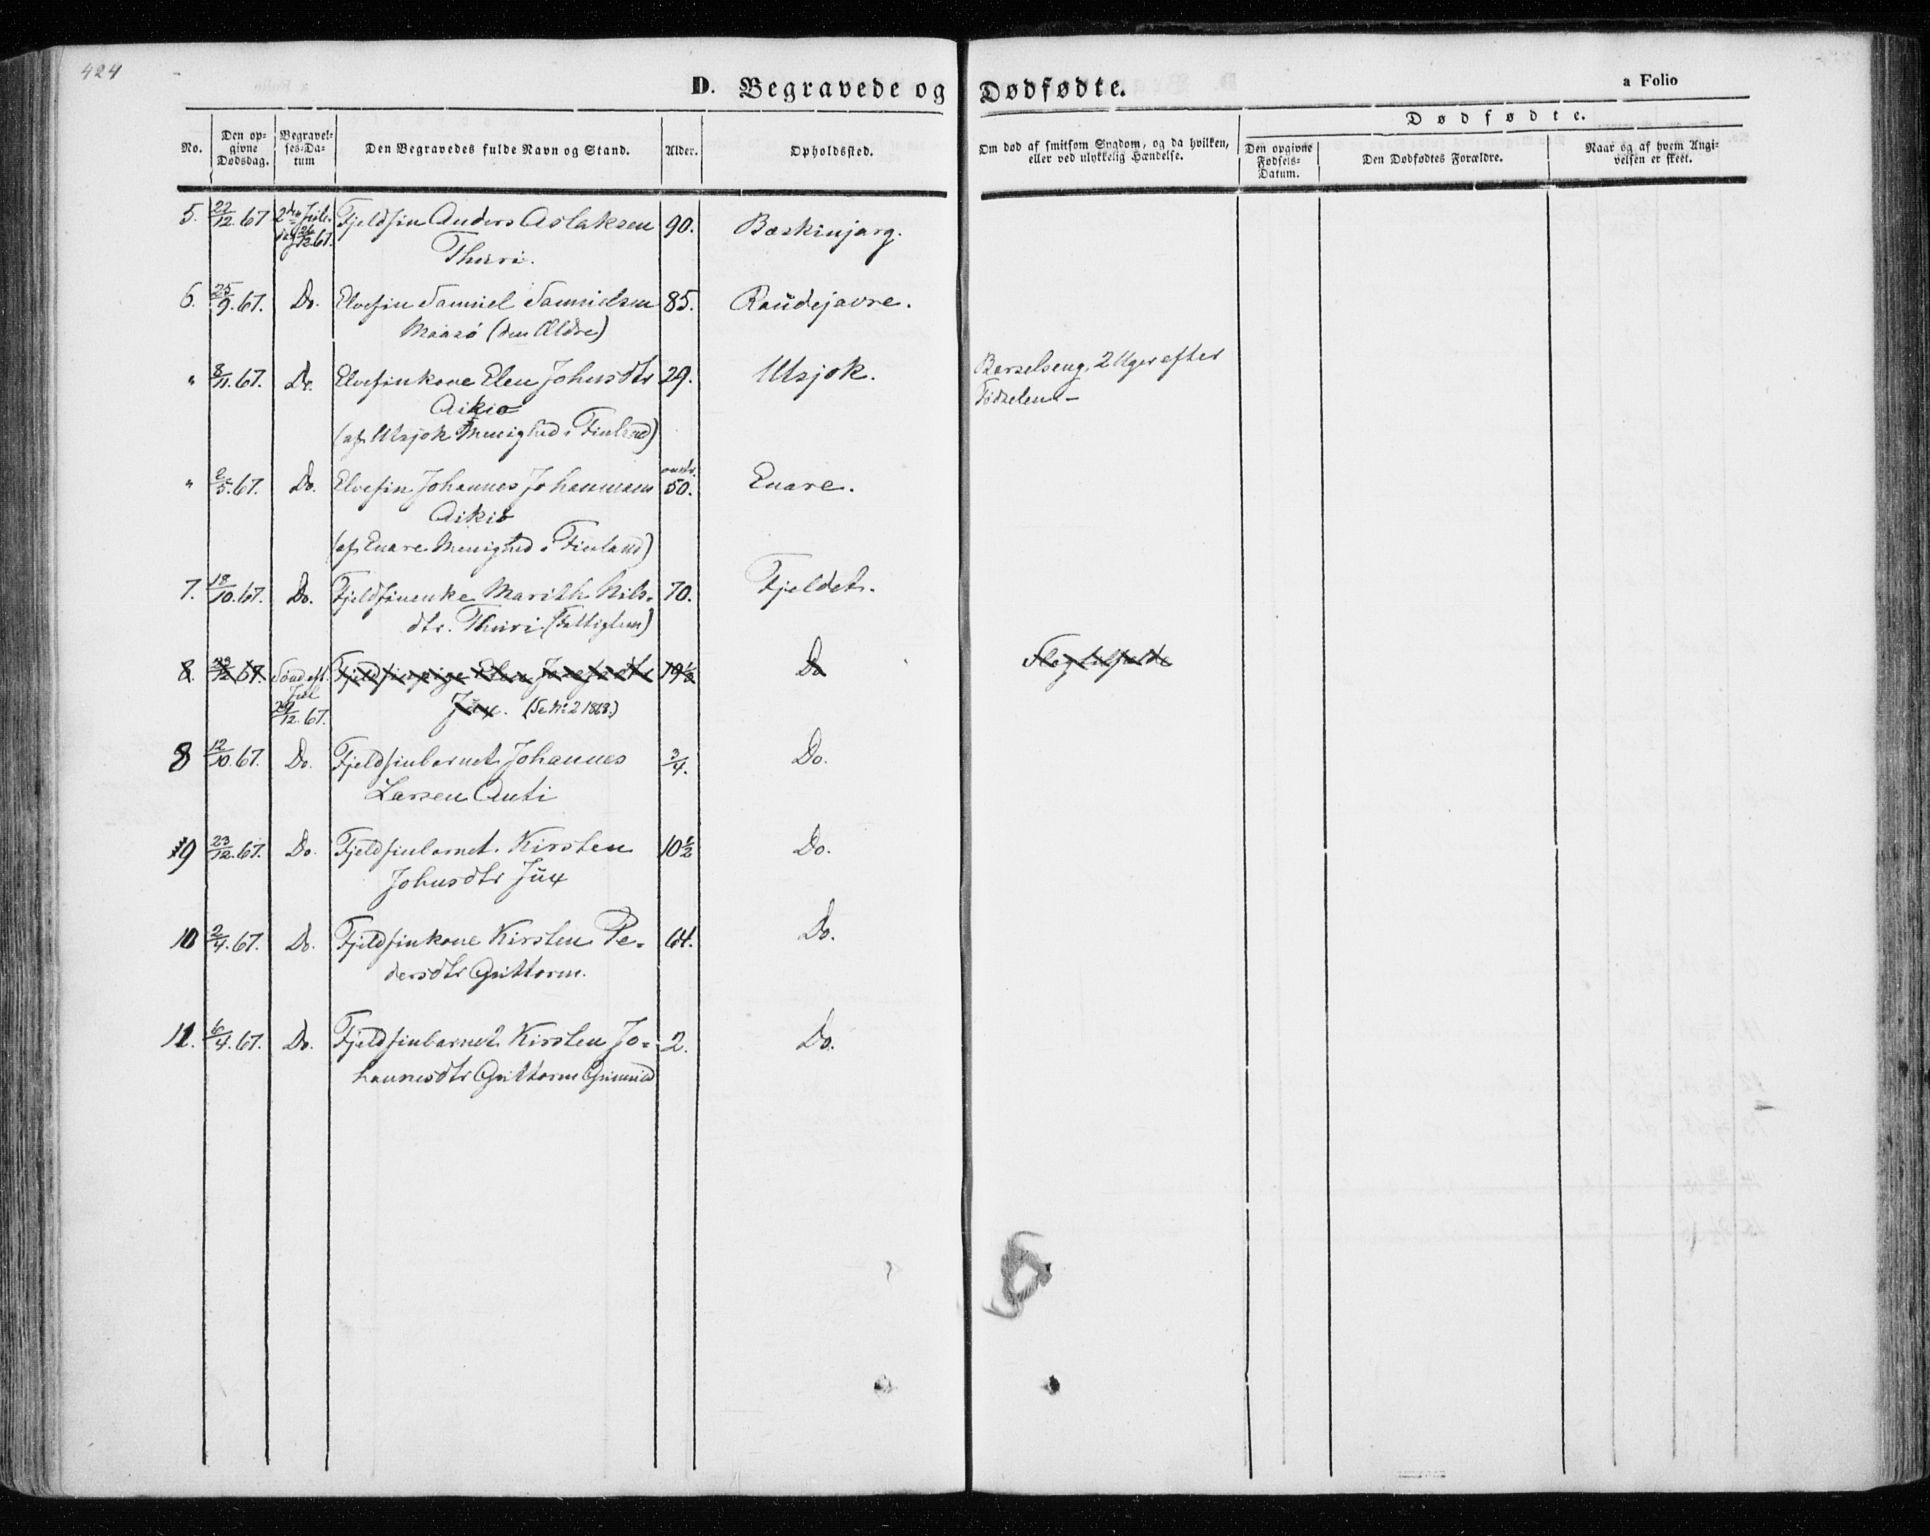 424
D. Begravede og Dødfødte.
a Folio
No.
Den opgivne Dødsdag.
Begravelses-Datum
Den Begravedes fulde Navn og Stand.
Alder.
Opholdssted.
Om død af smitsom Sygdom, og da hvilken, eller ved ulykkelig Hændelse.
Dødfødte.
Den opgivne Fødsels-Datum.
Den Dødfødtes Forældre.
Naar og af hvem Angivelsen er skeet.
5. 22/12.67 2den Juledag 26/12.67. Fjeldfin Anders Aslaksen 90. Bæskinjarg.
Thuri.
6. 25/9.67. Do. Elvefin Samuel Samuelsen 85. Raudejavre.
Maasö (den Ældre)
" 8/11.67. Do. Elvefinkone Elen Johnsdtr 29. Utsjok. Barselseng, 2 Uger efter
Aikio Fødselen.-
(af Utsjok Menighed i Finland)
" 2/5.67. Do. Elvefin Johannes Johannsen omtr. 50. Enare.
Aikio
(af Enare Menighed i Finland)
7. 18/10.67. Do. Fjeldfinenke Marith Nils- 70. Fjeldet.
dtr. Thuri (Fattiglem)
8. 23/12 67. Sönd. eft. Fjeldfinpige Elen Josefsdtr 19½ Do
Jul 29/12.67. Jux. (Se No 2 1868.)
8 12/10.67. Do. Fjeldfinbarnet Johannes 3/4. Do.
Larsen Anti
9 23/12.67. Do. Fjeldfinbarnet Kirsten 10½ Do.
Johnsdtr Jux
10 2/4.67. Do. Fjeldfinkone Kirsten Pe- 64. Do.
dersdtr Guttorm.
11. 6/4.67. Do. Fjeldfinbarnet Kirsten Jo- 2. Do.
hannesdtr Guttorm